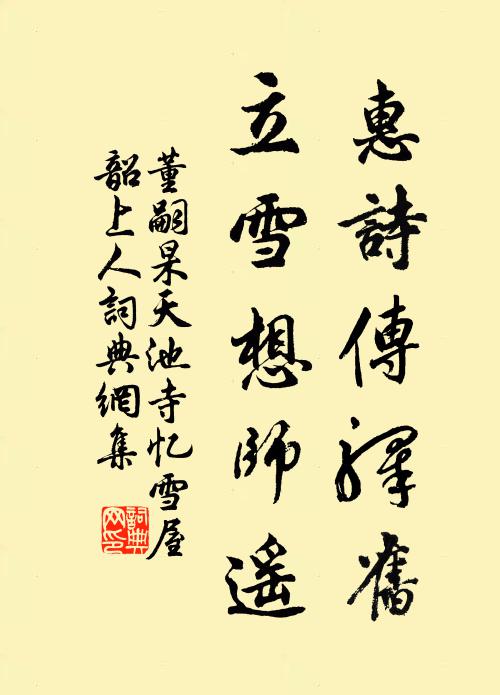 惠詩傳驛舊
立雪想師遥
董嗣杲天池寺忆雪屋
韶上人詞典網集
詞典網印